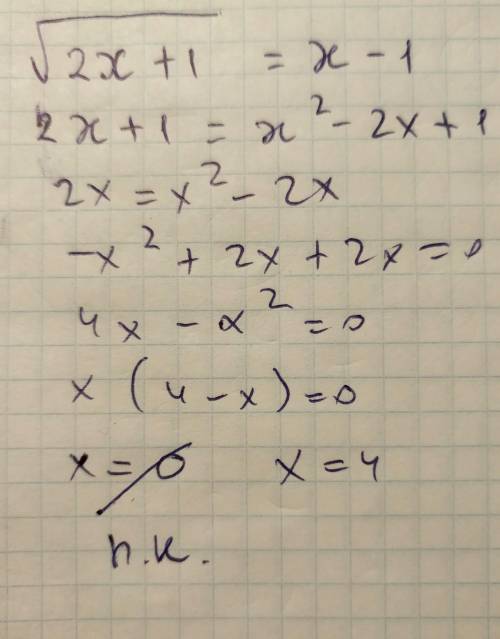 √(2x + 1) = x - 1
2x + 1 = x² - 2x + 1
2x = x² - 2x
-x² + 2x + 2x = 0
4x - x² = 0
x (4 - x) = 0
x = 0 x = 4
п.к.